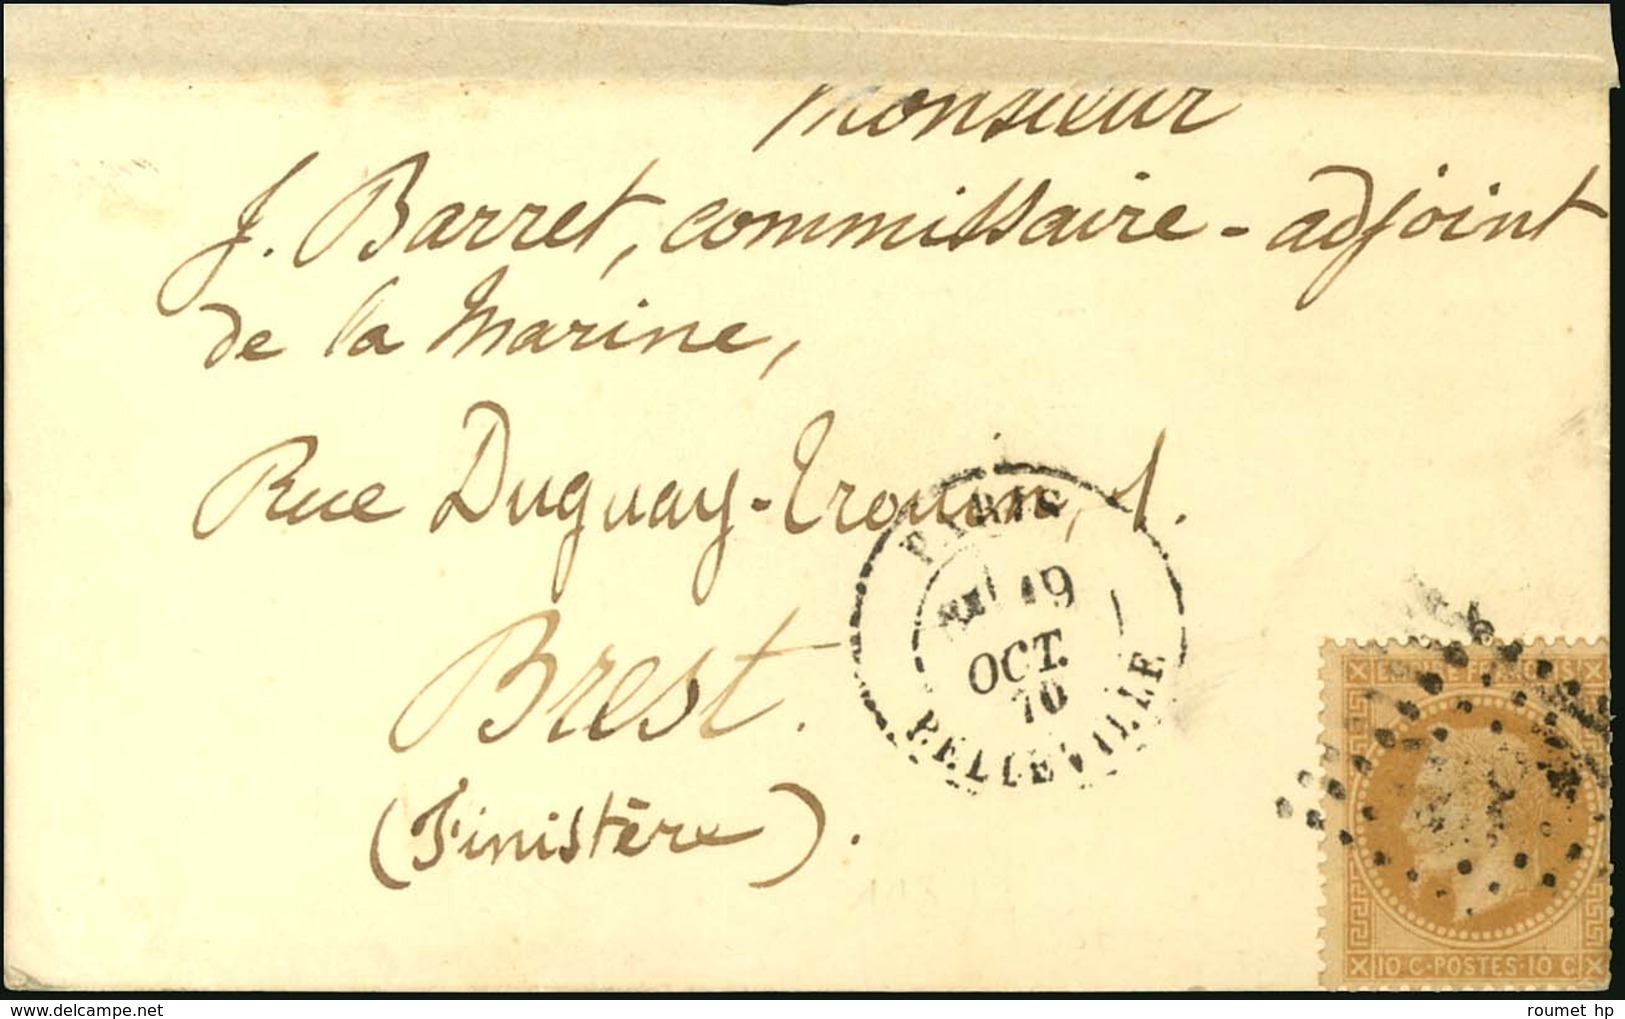 Monsieur
J. Barret, commissaire-adjoint
de la Marine,
Rue Duguay-Trouin, 1.
Brest.
(Finistère).
PARIS
19
OCT.
70
BELLEVILLE
EMPIRE FRANÇAIS
10 C-POSTES-10 C
118
www.delcampe.net
roumet hp